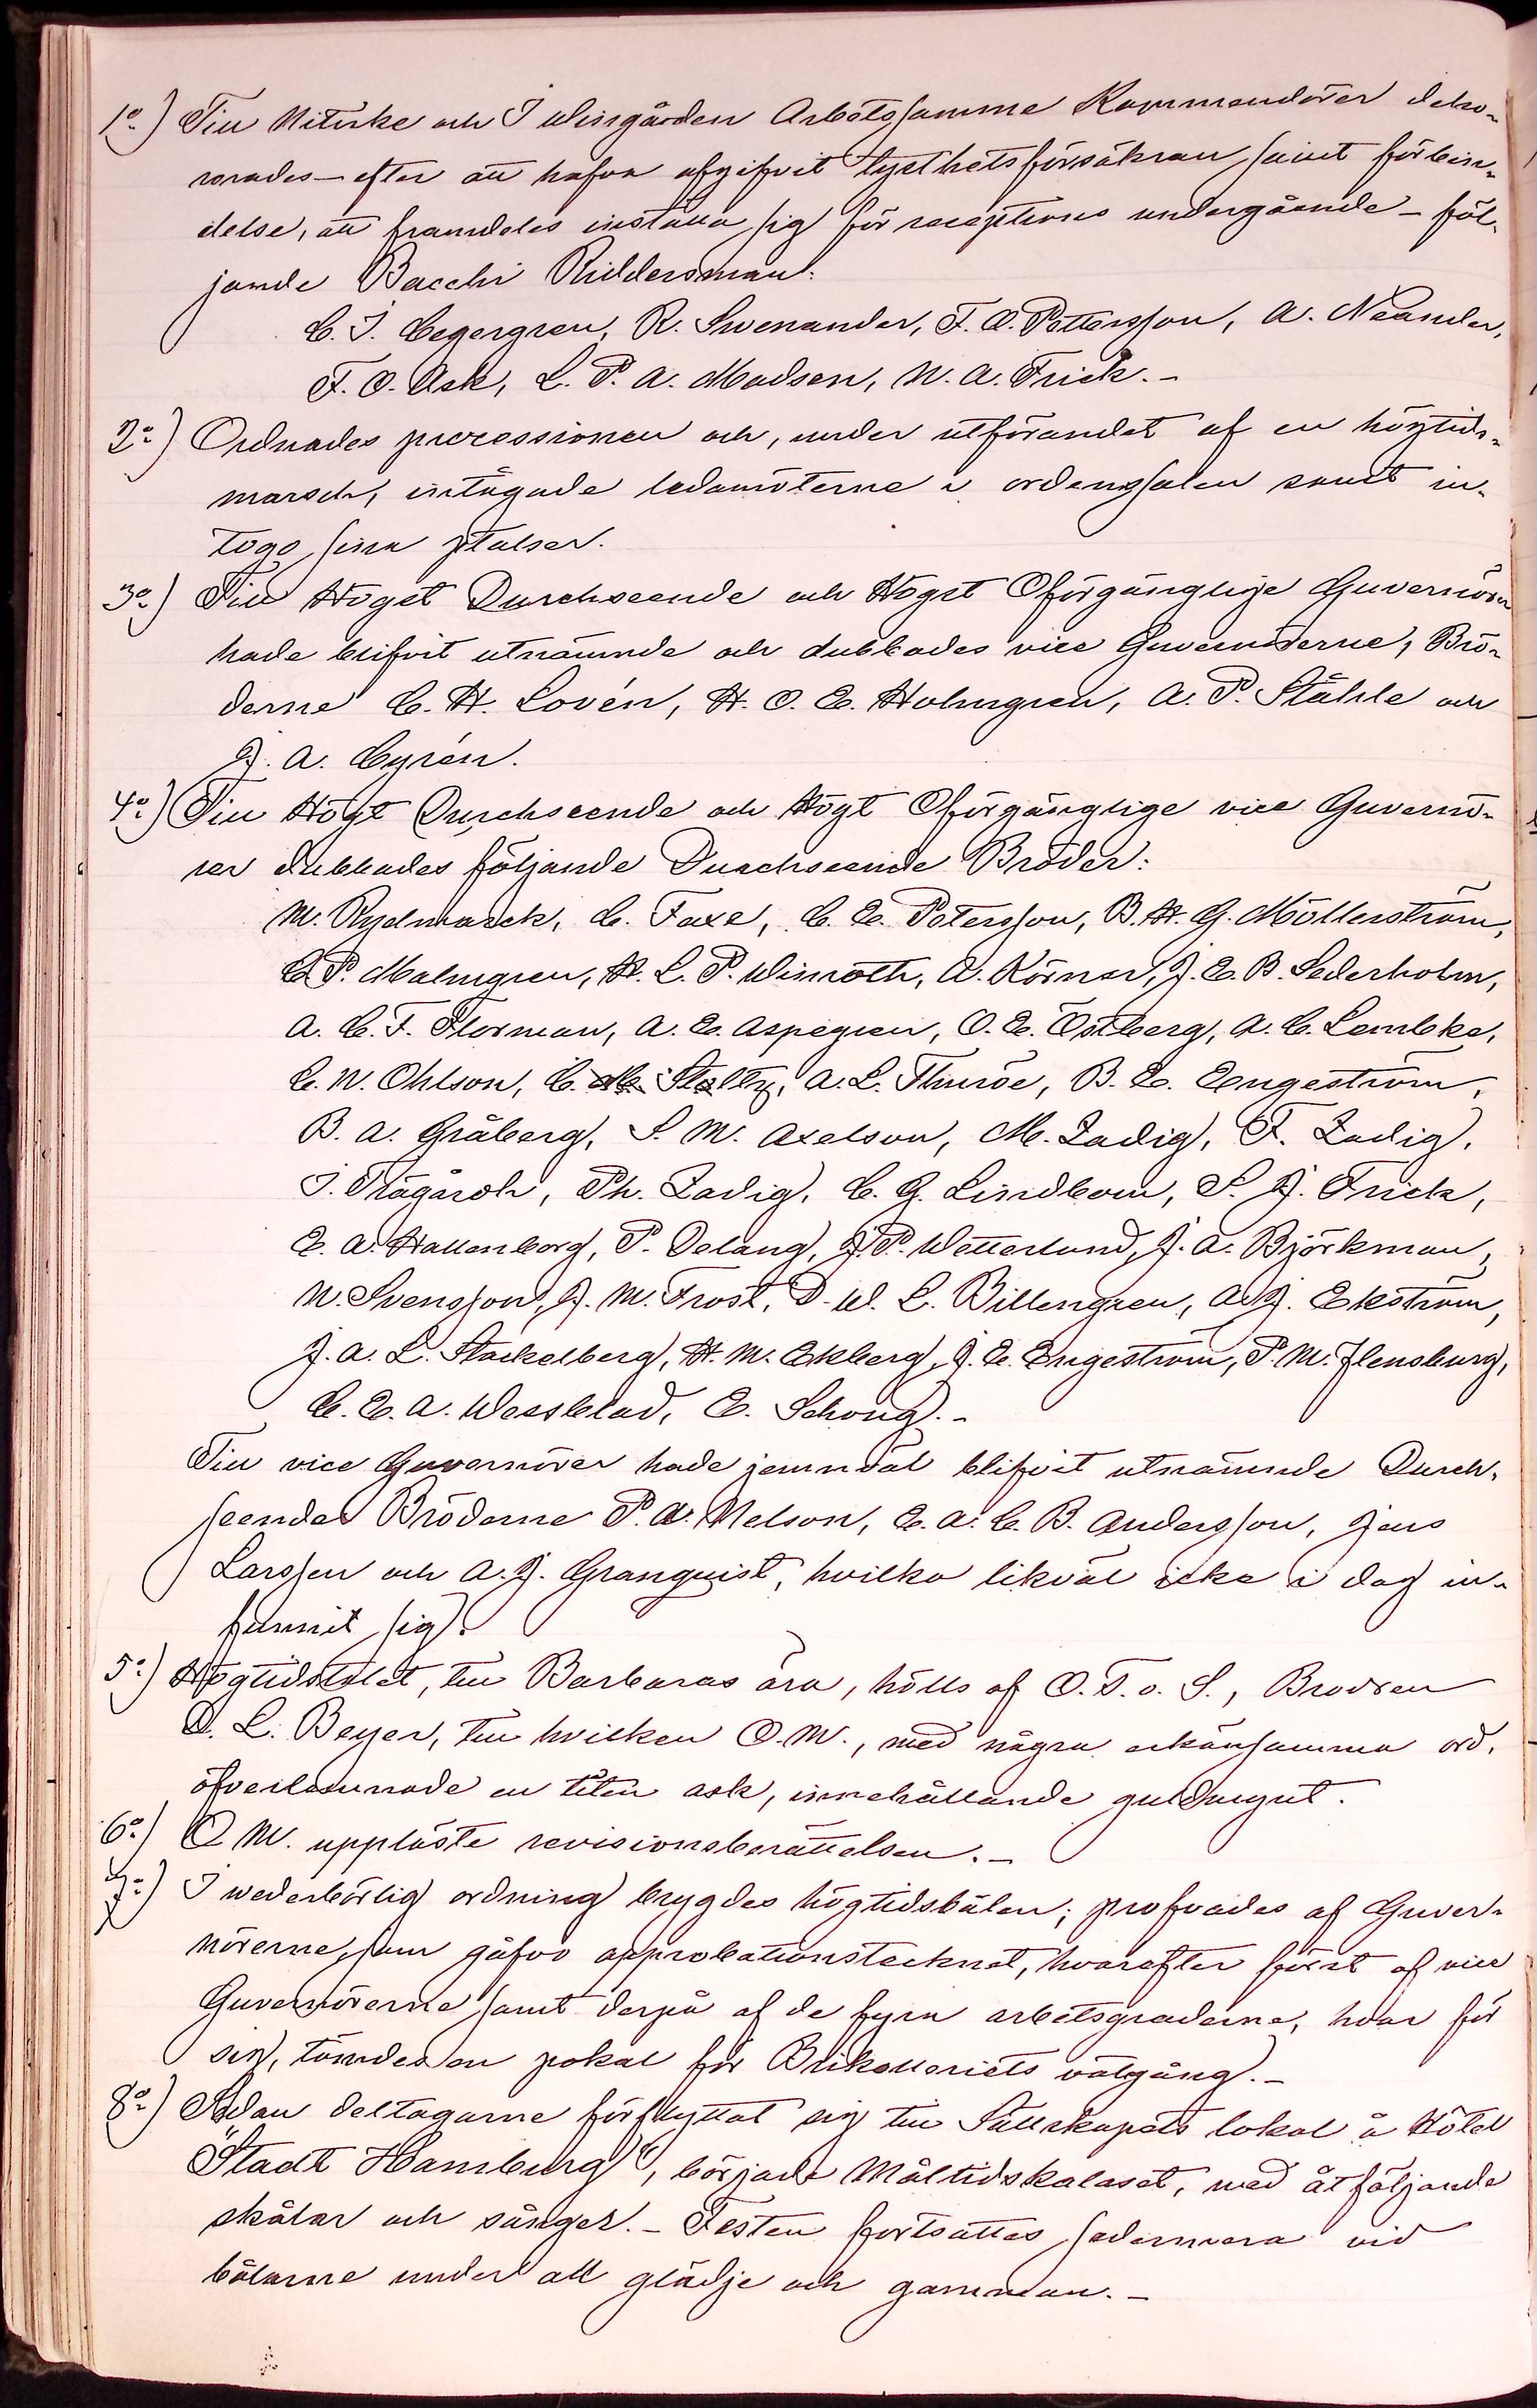 1o) Till Nitiske och I Wingården Arbetssamme Kommendörer deko-
rerades – efter att hafva afgifvit tysthetsförsäkran samt förbin-
delse, att framdeles inställa sig för receptions undergående – föl-
jande Bacchi Riddersmän:
C. I. Cegergren, R. Swenander, F. O. Pettersson, A. Neander,
F. O. Ask, L. P. A. Madsen, N. A. Frick. –
2o) Ordnades processionen och, under utförandet af en högtids-
marsch, intågade ledamöterne i ordenssalen samt in-
togo sina platser.
3o) Till Högst Durchseende och Högst Oförgänglige Guvernörer
hade blifvit utnämnde och dubbades vice Guvernörerne, Brö-
derne C. H. Lovén, H. O. E. Holmgren, A. P. Ståhle och
J. A. Cyrén.
4o) Till Högt Durchseende och Högt Oförgänglige vice Guvernö-
rer dubbades följande Durchseende Bröder:
M. Rydmarck, C. Faxe, C. E. Petersson, B. H. G. Möllerström,
C. P. Malmgren, H. L. P. Winroth, A. Körner, J. E. B. Sederholm,
A. C. F. Florman, A. E. Aspegren, O. E. Östberg, A. C. Lembke,
C. N. Ohlson, C. Stoltz, A. L. Thuröe, B. E. Engeström,
B. A. Gråberg, S. M. Axelson, M. Zadig, F. Zadig,
I. Trägårdh, Ph. Zadig, C. G. Lindbom, S. J. Frick,
E. A. Hallenborg, P. Delang, J. P. Wetterlund, J. A. Björkman,
N. Svensson, J. M. Frost, D. W. L. Billengren, A. J. Ekström,
J. A. L. Stackelberg, H. M. Ekberg, J. E. Engeström, P. M. Flensburg,
C. E. A. Wessblad, E. Schoug. –
Till vice Guvernörer hade jemnväl blifvit utnämnde Durch-
seende Bröderne P. A. Nelson, E. A. C. B. Andersson, Jens
Larssen och A. J. Granquist, hvilka likväl icke i dag in-
funnit sig.
5o) Högtidstalet, till Barbaras ära, hölls af O. T. o. S., Brodren
D. L. Beyer, till hvilken O. M., med några erkänsamma ord,
öfverlemnade en liten ask, innehållande guldmynt.
6o) O M. uppläste revisionsberättelsen. –
7o) I wederbörlig ordning brygdes högtidsbålen; profvades af Guver-
nörerne, som gåfvo approbationstecknet, hvarefter först af vice
Guvernörerne samt derpå af de fyra arbetsgraderne, hvar för
sig, tömdes en pokal för Brikolleriets välgång. –
8o) Sedan deltagarne förflyttat sig till Sällskapets lokal å Hôtel
"Stadt Hamburg", började Måltidskalaset, med åtföljande
skålar och sånger. – Festen fortsattes sedermera vid
bålarne under all glädje och gamman. –